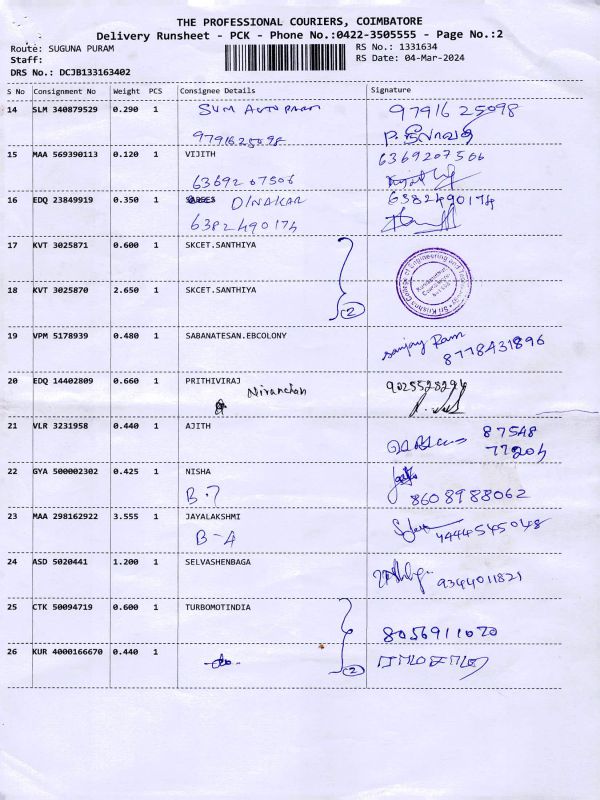 THE PROFESSIONAL COURIERS, COIMBATORE
Delivery Runsheet - PCK - Phone No.:0422-3505555 - Page No.:2
Route: SUGUNA PURAM
RS No.: 1331634
Staff:
RS Date: 04-Mar-2024
DRS No.: DCJB133163402
S No Consignment No Weight PCS Consignee Details Signature
14 SLM 340879529 0.290 1 SVM AUTO PARM 9791625098
9791625098
15 MAA 569390113 0.120 1 VIJITH 6369207506
6369207506
16 EDQ 23849919 0.350 1 DINAKAR 6382490174
6382490174
17 KVT 3025871 0.600 1 SKCET.SANTHIYA
Sri Krishna College of Engineering and Technology
18 KVT 3025870 2.650 1 SKCET.SANTHIYA
2
19 VPM 5178939 0.480 1 SABANATESAN.EBCOLONY sanjay Ram
8778431896
20 EDQ 14402809 0.660 1 PRITHIVIRAJ
Niranchan
21 VLR 3231958 0.440 1 AJITH 87548
77204
22 GYA 500002302 0.425 1 NISHA
B-7 8608988062
23 MAA 298162922 3.555 1 JAYALAKSHMI
B-4 9444545048
24 ASD 5020441 1.200 1 SELVASHENBAGA
9344011821
25 CTK 50094719 0.600 1 TURBOMOTINDIA
8056911020
26 KUR 4000166670 0.440 1
-do-
2